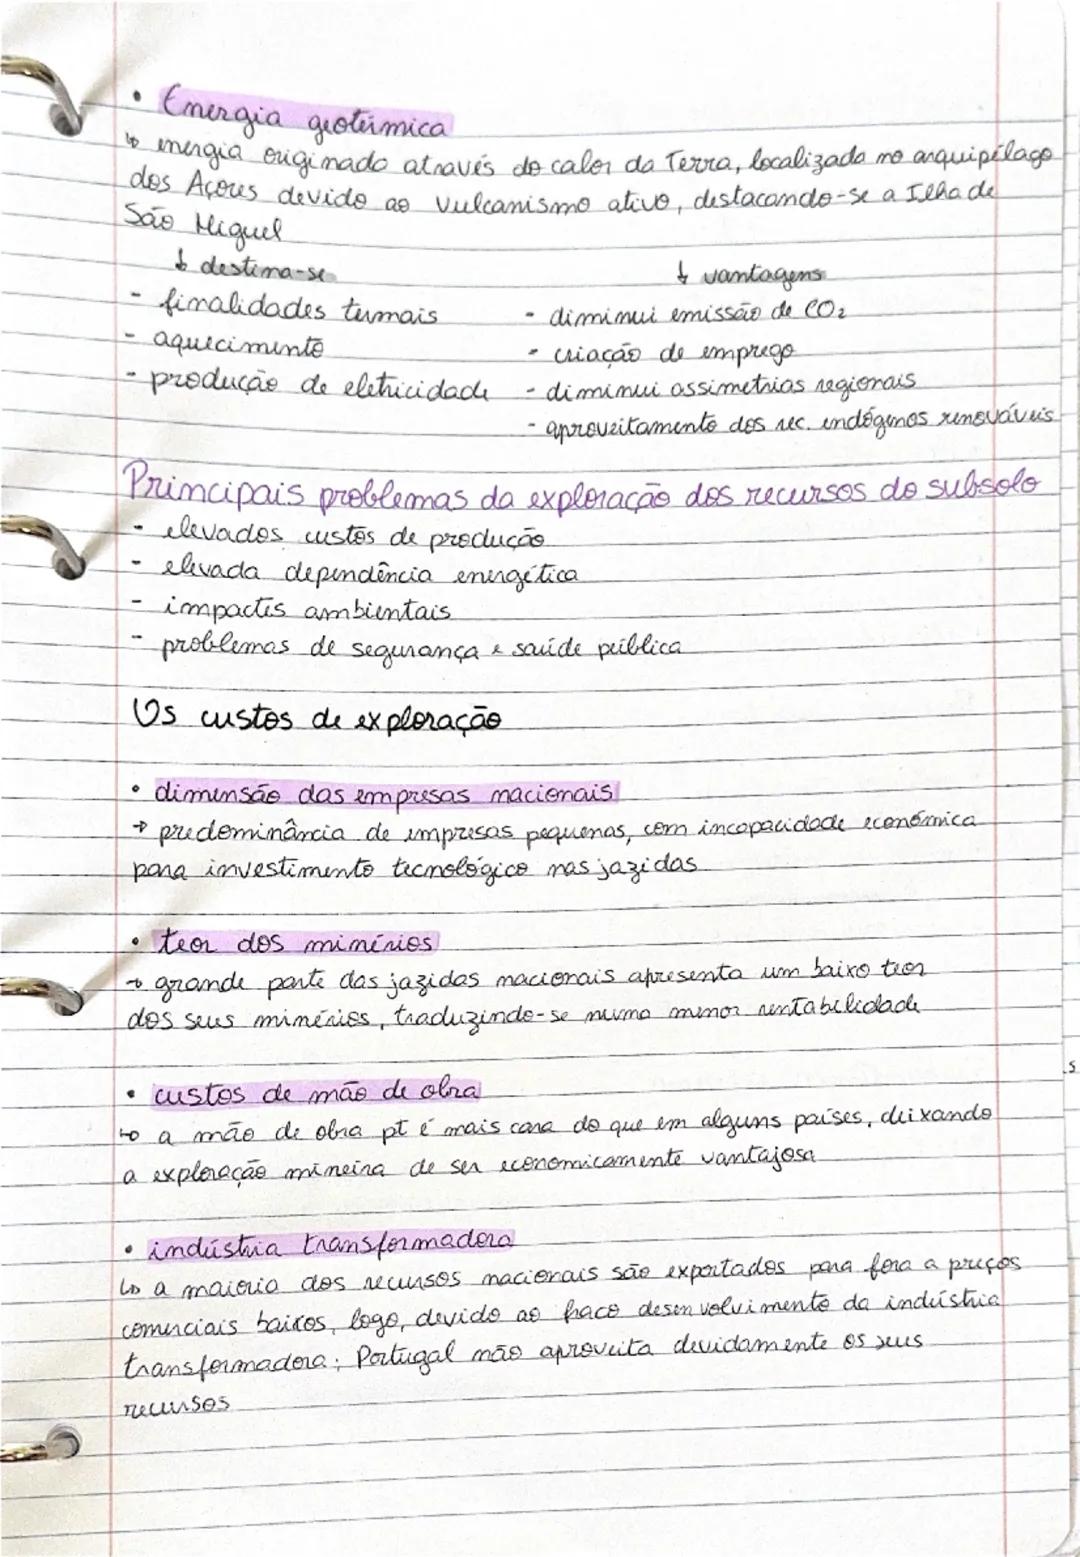 • Energia geotérmica
↳ energia originado através do calor da Terra, localizada no arquipélago
dos Açores devido ao Vulcanismo ativo, destacando-se a Ilha de
São Miguel
↓ destina-se
- finalidades termais
- aquecimento
- produção de eletricidade
↓ vantagens
- diminui emissão de CO₂
- criação de emprego
- diminui assimetrias regionais
- aproveitamento dos rec. endógenos renováveis
Principais problemas da exploração dos recursos do subsolo
- elevados custos de produção
- elevada dependência energética
- impactes ambientais
- problemas de segurança e saúde pública
Os custos de exploração
• dimensão das empresas nacionais
→ predominância de empresas pequenas, com incapacidade económica
para investimento tecnológico nas jazidas
• teor dos minérios
→ grande parte das jazidas nacionais apresenta um baixo teor
dos seus minérios, traduzindo-se numa menor rentabilidade
• custos de mão de obra
↳ a mão de obra pt é mais cara do que em alguns países, deixando
a exploração mineira de ser economicamente vantajosa
• indústria transformadora
↳ a maioria dos recursos nacionais são exportados para fora a preços
comerciais baixos, logo, devido ao fraco desenvolvimento da indústria
transformadora; Portugal não aproveita devidamente os seus
recursos